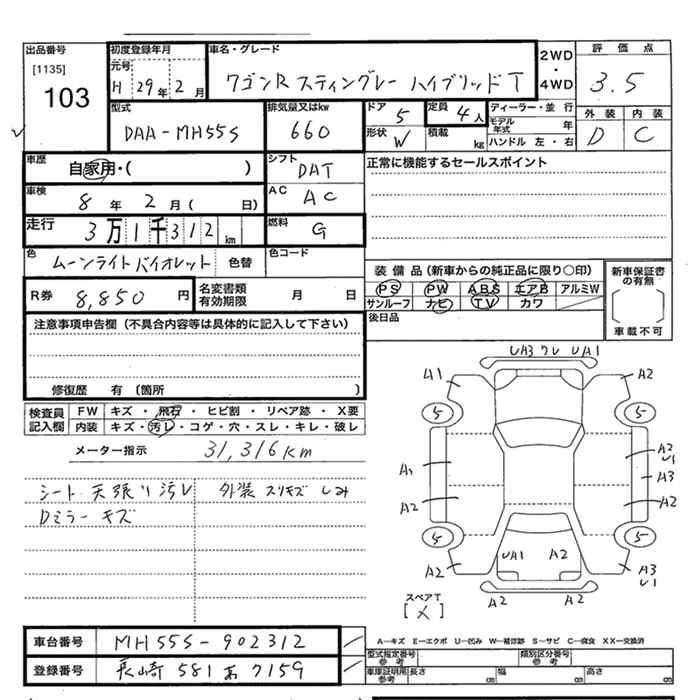 出品番号 [1135] 103
初度登録年月 元号 H 29年 2月
車名・グレード ワゴンR スティングレー ハイブリッド T
2WD・4WD
評価点 3.5
外装 内装
D C
型式 DAA-MH55S
排気量又はkw 660
ドア 5
形状 W
定員 4人
積載 kg
ディーラー・並行
モデル年式 年
ハンドル 左・右
車歴 自家用・( )
シフト DAT
正常に機能するセールスポイント
車検 8年 2月( 日)
AC AC
走行 3万1千312km
燃料 G
色 ムーンライトバイオレット 色替
色コード
R券 8,850円
名変書類有効期限 月 日
装備品(新車からの純正品に限り○印)
PS PW ABS エアB アルミW
サンルーフ ナビ TV カワ
新車保証書の有無
車載不可
後日品
注意事項申告欄(不具合内容等は具体的に記入して下さい)
修復歴 有 (箇所 )
検査員記入欄
FW キズ・飛石・ヒビ割・リペア跡・X要
内装 キズ・汚レ・コゲ・穴・スレ・キレ・破レ
メーター指示 31,316km
シート 天張り汚レ 外装 スリキズ しみ
Dミラー キズ
UA3 ワレ UA1
A1 A2
5 5
A1 A2 U1
A3
A2 A2
5 5
UA1 A2
A2 A3 U1
A2 A2
スペアT
[メ]
車台番号 MH55S-902312
登録番号 長崎 581 あ 7159
A―キズ E―エクボ U―凹み W―補修跡 S―サビ C―腐食 XX―交換済
型式指定番号 参考 類別区分番号 参考
車庫証明用 参考 長さ cm 幅 cm 高さ cm